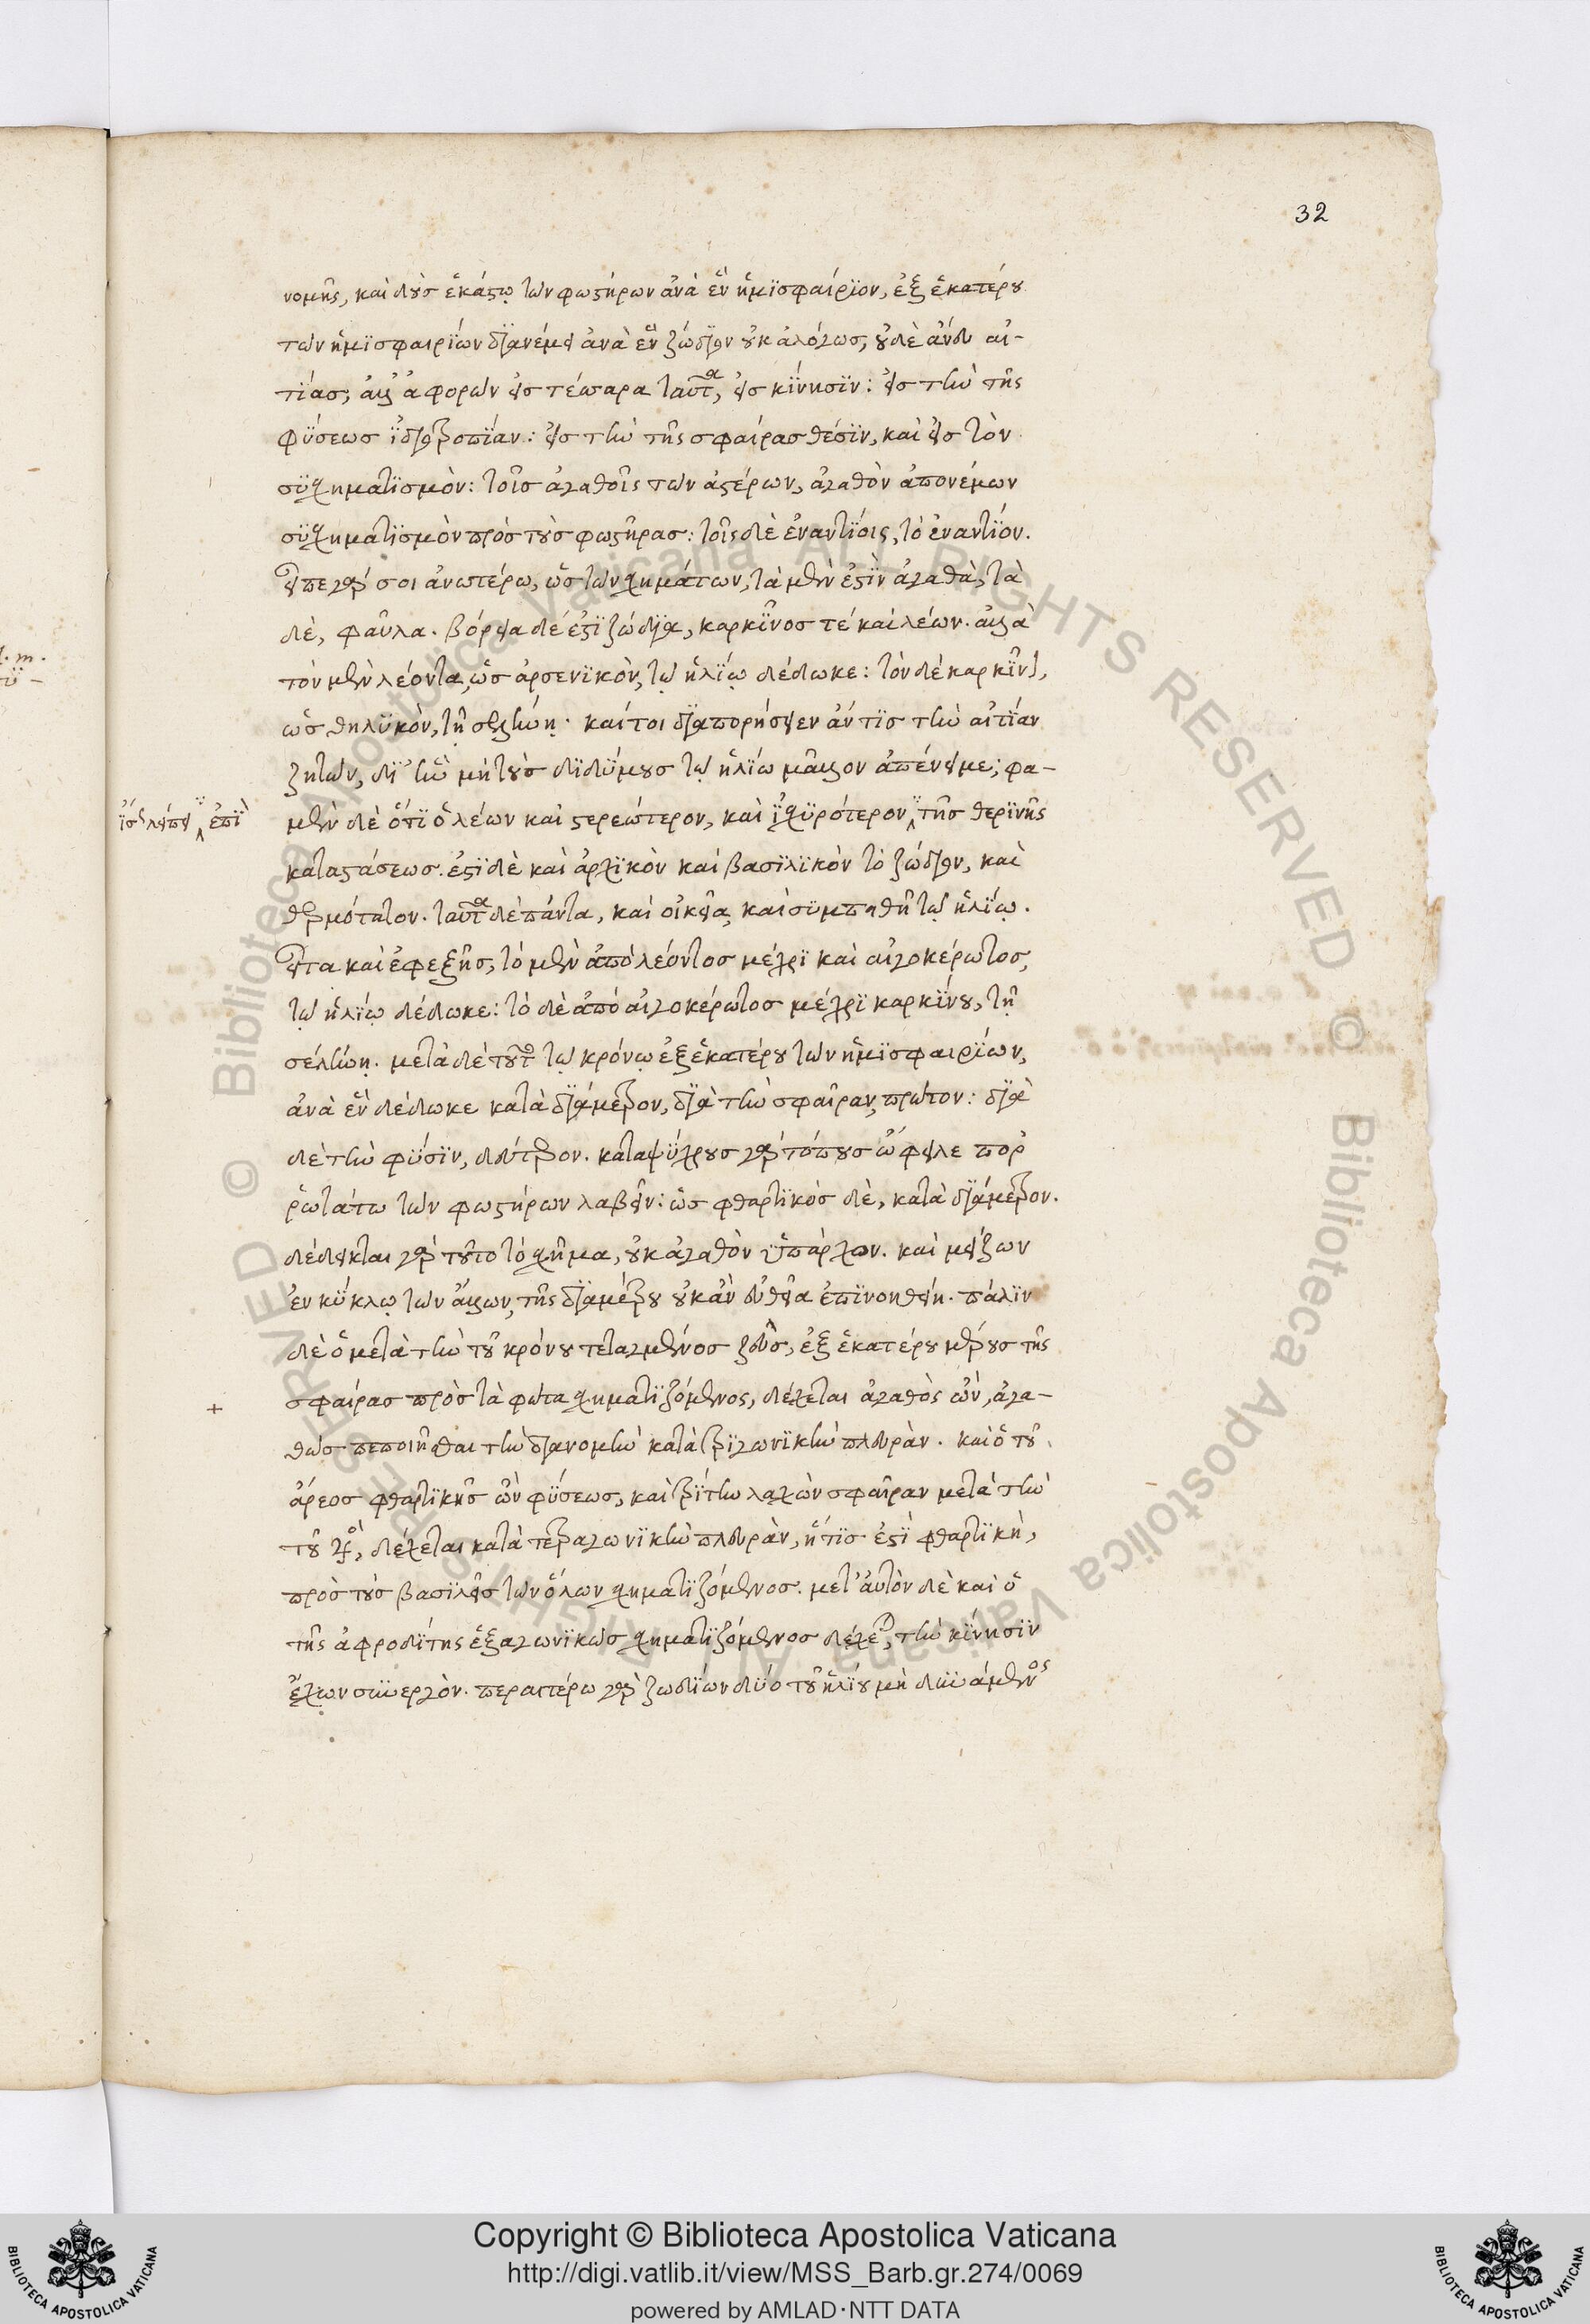 32
νομῆς, καὶ δοὺς ἑκάστῳ τῶν φωστήρων ἀνὰ ἓν ἡμϊσφαίρϊον, ἐξ ἑκατέρου
τῶν ἡμϊσφαιρϊων δϊανέμει ἀνὰ ἓν ζώδϊον οὐκ ἀλόγως, οὐδὲ ἄνευ αἰ-
τίας, ἀλλ' ἀφορῶν εἰς τέσσαρα ταῦτα, εἰς κϊνησϊν: εἰς τὴν τῆς
φϋσεως ϊδϊοτροπϊαν: εἰς τὴν τῆς σφαίρας θέσϊν, καὶ εἰς τὸν
συσχηματϊσμὸν: τοῖς ἀγαθοῖς τῶν ἀστέρων, ἀγαθὸν ἀπονέμων
συσχηματϊσμὸν πρὸς τοὺς φωστῆρας: τοῖς δὲ ἐναντϊοις, τὸ ἐναντϊον.
εἶπε γάρ σοι ἀνωτέρω, ὡς τῶν σχημάτων, τὰ μὲν ἐστϊν ἀγαθὰ, τὰ
δὲ, φαῦλα. βόρεια δέ ἐστϊ ζώδϊα, καρκϊνος τέ καὶ λέων. ἀλλὰ
τὸν μὲν λέοντα, ὡς ἀρσενϊκὸν, τῷ ἡλϊῳ δέδωκε: τὸν δὲ καρκϊνον,
ὡς θηλϋκὸν, τῇ σελήνῃ. καίτοι δϊαπορήσειεν ἄν τϊς τὴν αἰτϊαν
ζητῶν, δϊ' ἣν μὴ τοὺς δϊδϋμους τῷ ἡλϊω μᾶλλον ἀπένειμε; φα-
μὲν δὲ ὅτϊ ὁ λέων καὶ στερεώτερον, καὶ ϊσχϋρότερον τῆς θερϊνῆς
ϊσ λείπει ἐπϊ
καταστάσεως. ἐστϊ δὲ καὶ ἀρχϊκὸν καὶ βασϊλϊκὸν τὸ ζώδϊον, καὶ
θερμότατον. ταῦτα δὲ πάντα, καὶ οἰκεῖα, καὶ σϋμπαθῆ τῷ ἡλϊῳ.
εἶτα καὶ ἐφεξῆς, τὸ μὲν ἀπὸ λέοντος μέχρϊ καὶ αἰγοκέρωτος,
τῷ ἡλϊῳ δέδωκε: τὸ δὲ ἀπὸ αἰγοκέρωτος μέχρϊ καρκϊνου, τῇ
σελήνῃ. μετὰ δὲ τοῦτο τῷ κρόνῳ ἐξ ἑκατέρου τῶν ἡμϊσφαιρϊων,
ἀνὰ ἓν δέδωκε κατὰ δϊάμετρον, δϊὰ τὴν σφαῖραν, πρῶτον: δϊὰ
δὲ τὴν φϋσϊν, δεύτερον. καταψϋχρους γὰρ τόπους ὤφειλε πορ
ρωτάτω τῶν φωστήρων λαβεῖν: ὡς φθαρτϊκὸς δὲ, κατὰ δϊάμετρον.
δέδεικται γὰρ τοῦτο τὸ σχῆμα, οὐκ ἀγαθὸν ὑπάρχον. καὶ μείζων
ἐν κϋκλῳ τῶν ἄλλων, τῆς δϊαμέτρου οὐκ ἂν εὐθεῖα ἐπϊνοηθείη. πάλϊν
δὲ ὁ μετὰ τὴν τοῦ κρόνου τεταγμένος ζεὺς, ἐξ ἑκατέρου μέρους τῆς
σφαίρας πρὸς τὰ φῶτα σχηματϊζόμενος, δέχεται ἀγαθὸς ὢν, ἀγα-
+
θῶς πεποιῆσθαι τὴν δϊανομὴν κατὰ τρϊγωνϊκὴν πλευρὰν. καὶ ὁ τοῦ
ἄρεος φθαρτϊκῆς ὢν φϋσεως, καὶ τρϊτην λαχὼν σφαῖραν μετὰ τὴν
τοῦ ♃, δέχεται κατὰ τετραγωνϊκὴν πλευρὰν, ἥτϊς ἐστϊ φθαρτϊκὴ,
πρὸς τοὺς βασϊλεῖς τῶν ὅλων σχηματϊζόμενος. μετ' αὐτὸν δὲ καὶ ὁ
τῆς ἀφροδϊτης ἑξαγωνϊκῶς σχηματϊζόμενος δέχεται, τὴν κϊνησϊν
ἔχων συνεργὸν. περαιτέρω γὰρ ζωδϊων δϋο τοῦ ἡλϊου μὴ δυνάμενος
Copyright © Biblioteca Apostolica Vaticana
http://digi.vatlib.it/view/MSS_Barb.gr.274/0069
powered by AMLAD·NTT DATA